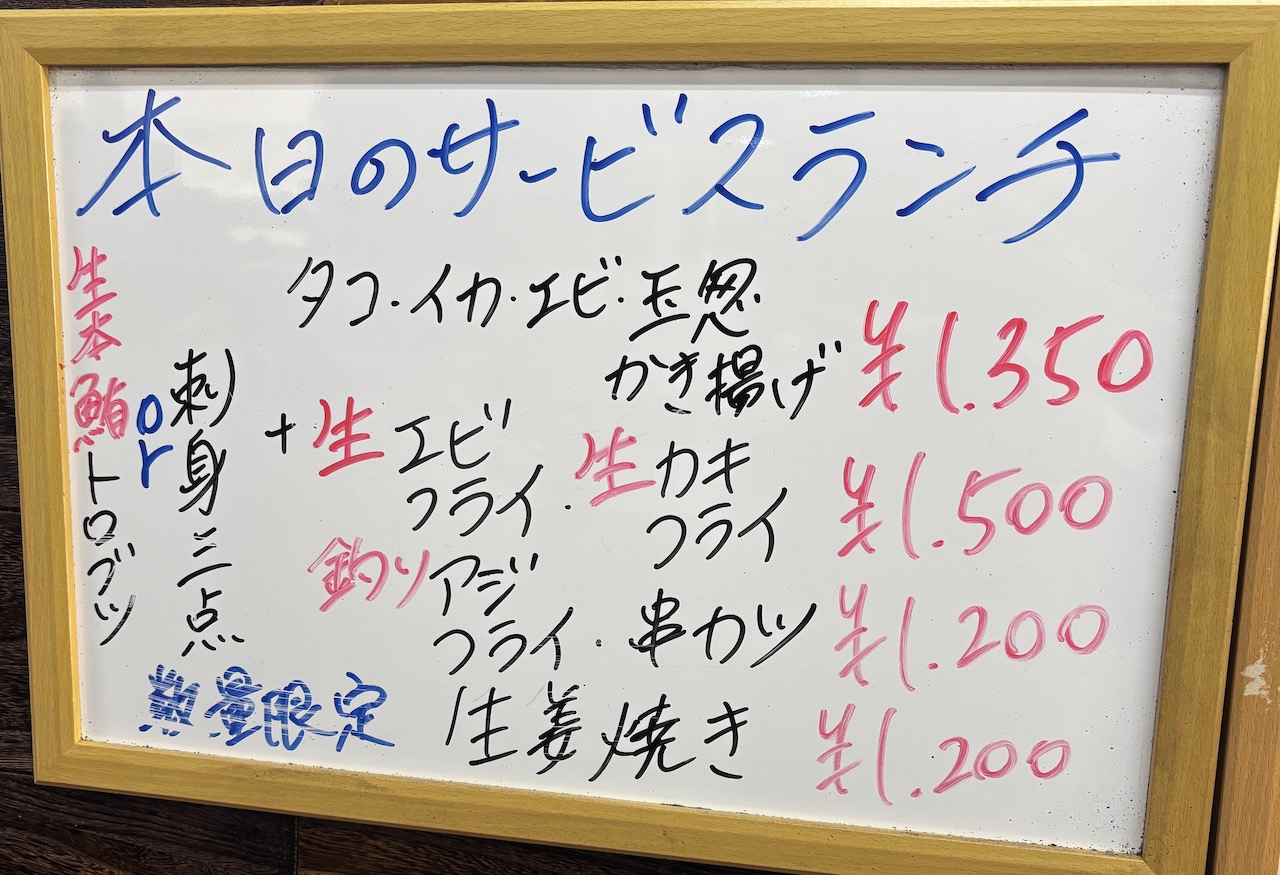 本日のサービスランチ
生本鮪トロブツ
or
刺身三点
+
タコ・イカ・エビ・玉葱
かき揚げ ¥1.350
生エビフライ・生カキフライ ¥1.500
釣りアジフライ・串カツ ¥1.200
生姜焼き ¥1.200
数量限定